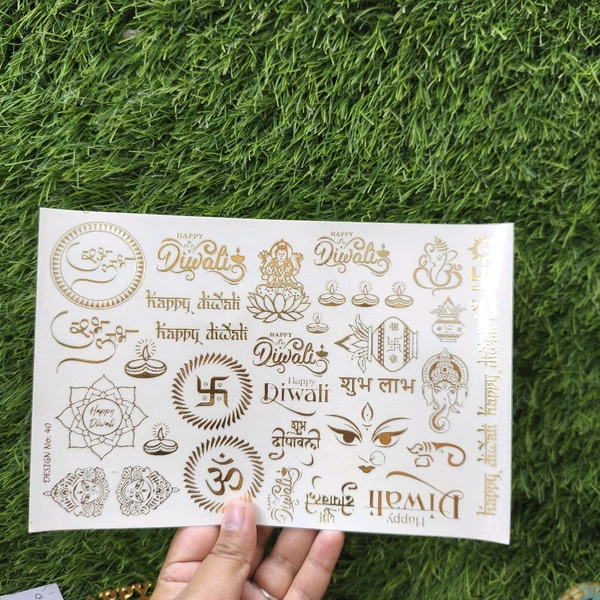 शुभ लाभ
HAPPY
Diwali
HAPPY
Diwali
happy diwali
happy diwali
शुभ लाभ
HAPPY
Diwali
Happy
Diwali
शुभ लाभ
Happy
Diwali
शुभ
दीपावली
ॐ
DESIGN No: 40
HAPPY
Diwali
शुभ
दीपावली
Happy
Diwali
happy diwali
happy diwali
happy diwali